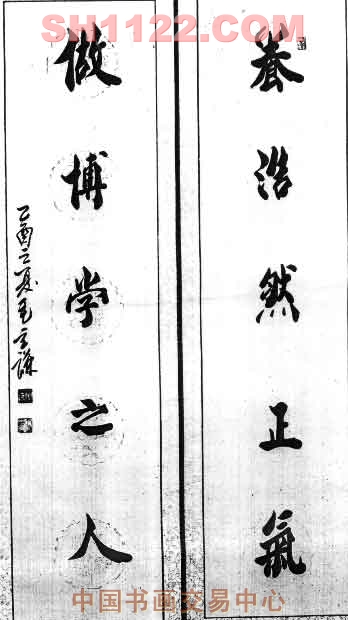 SH1122.COM
養浩然正氣
做博学之人
乙酉之夏毛立谦
中国书画交易中心